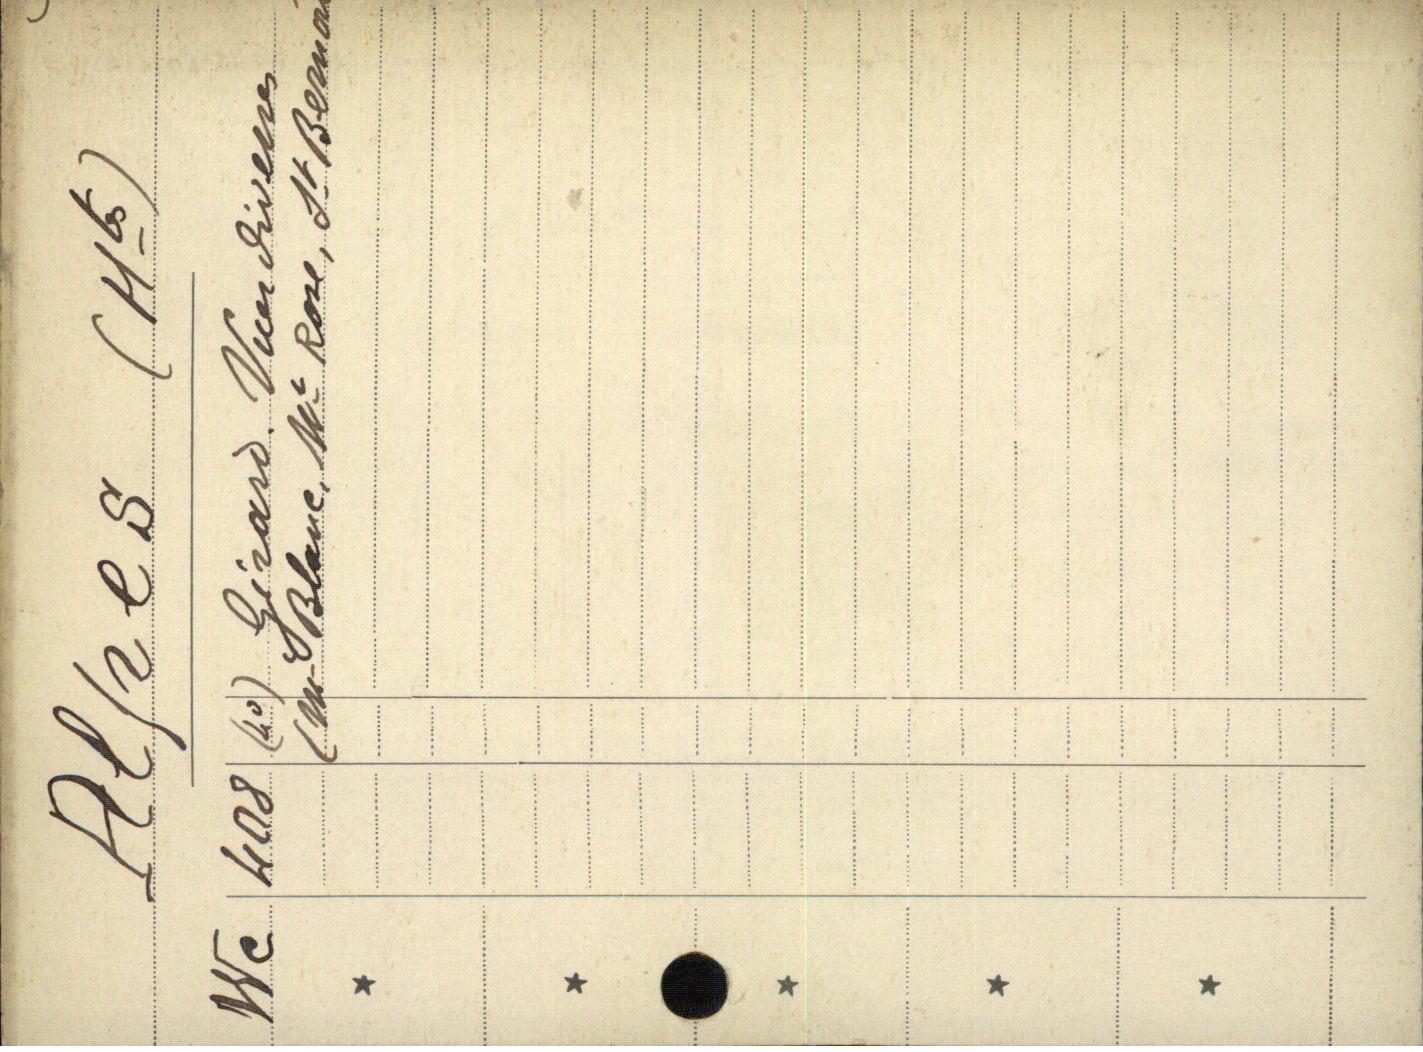 Alpes (Htes)
We 408 (4°) Girard. Vues diverses
(Mt Blanc, Mt Rose, St Bernar